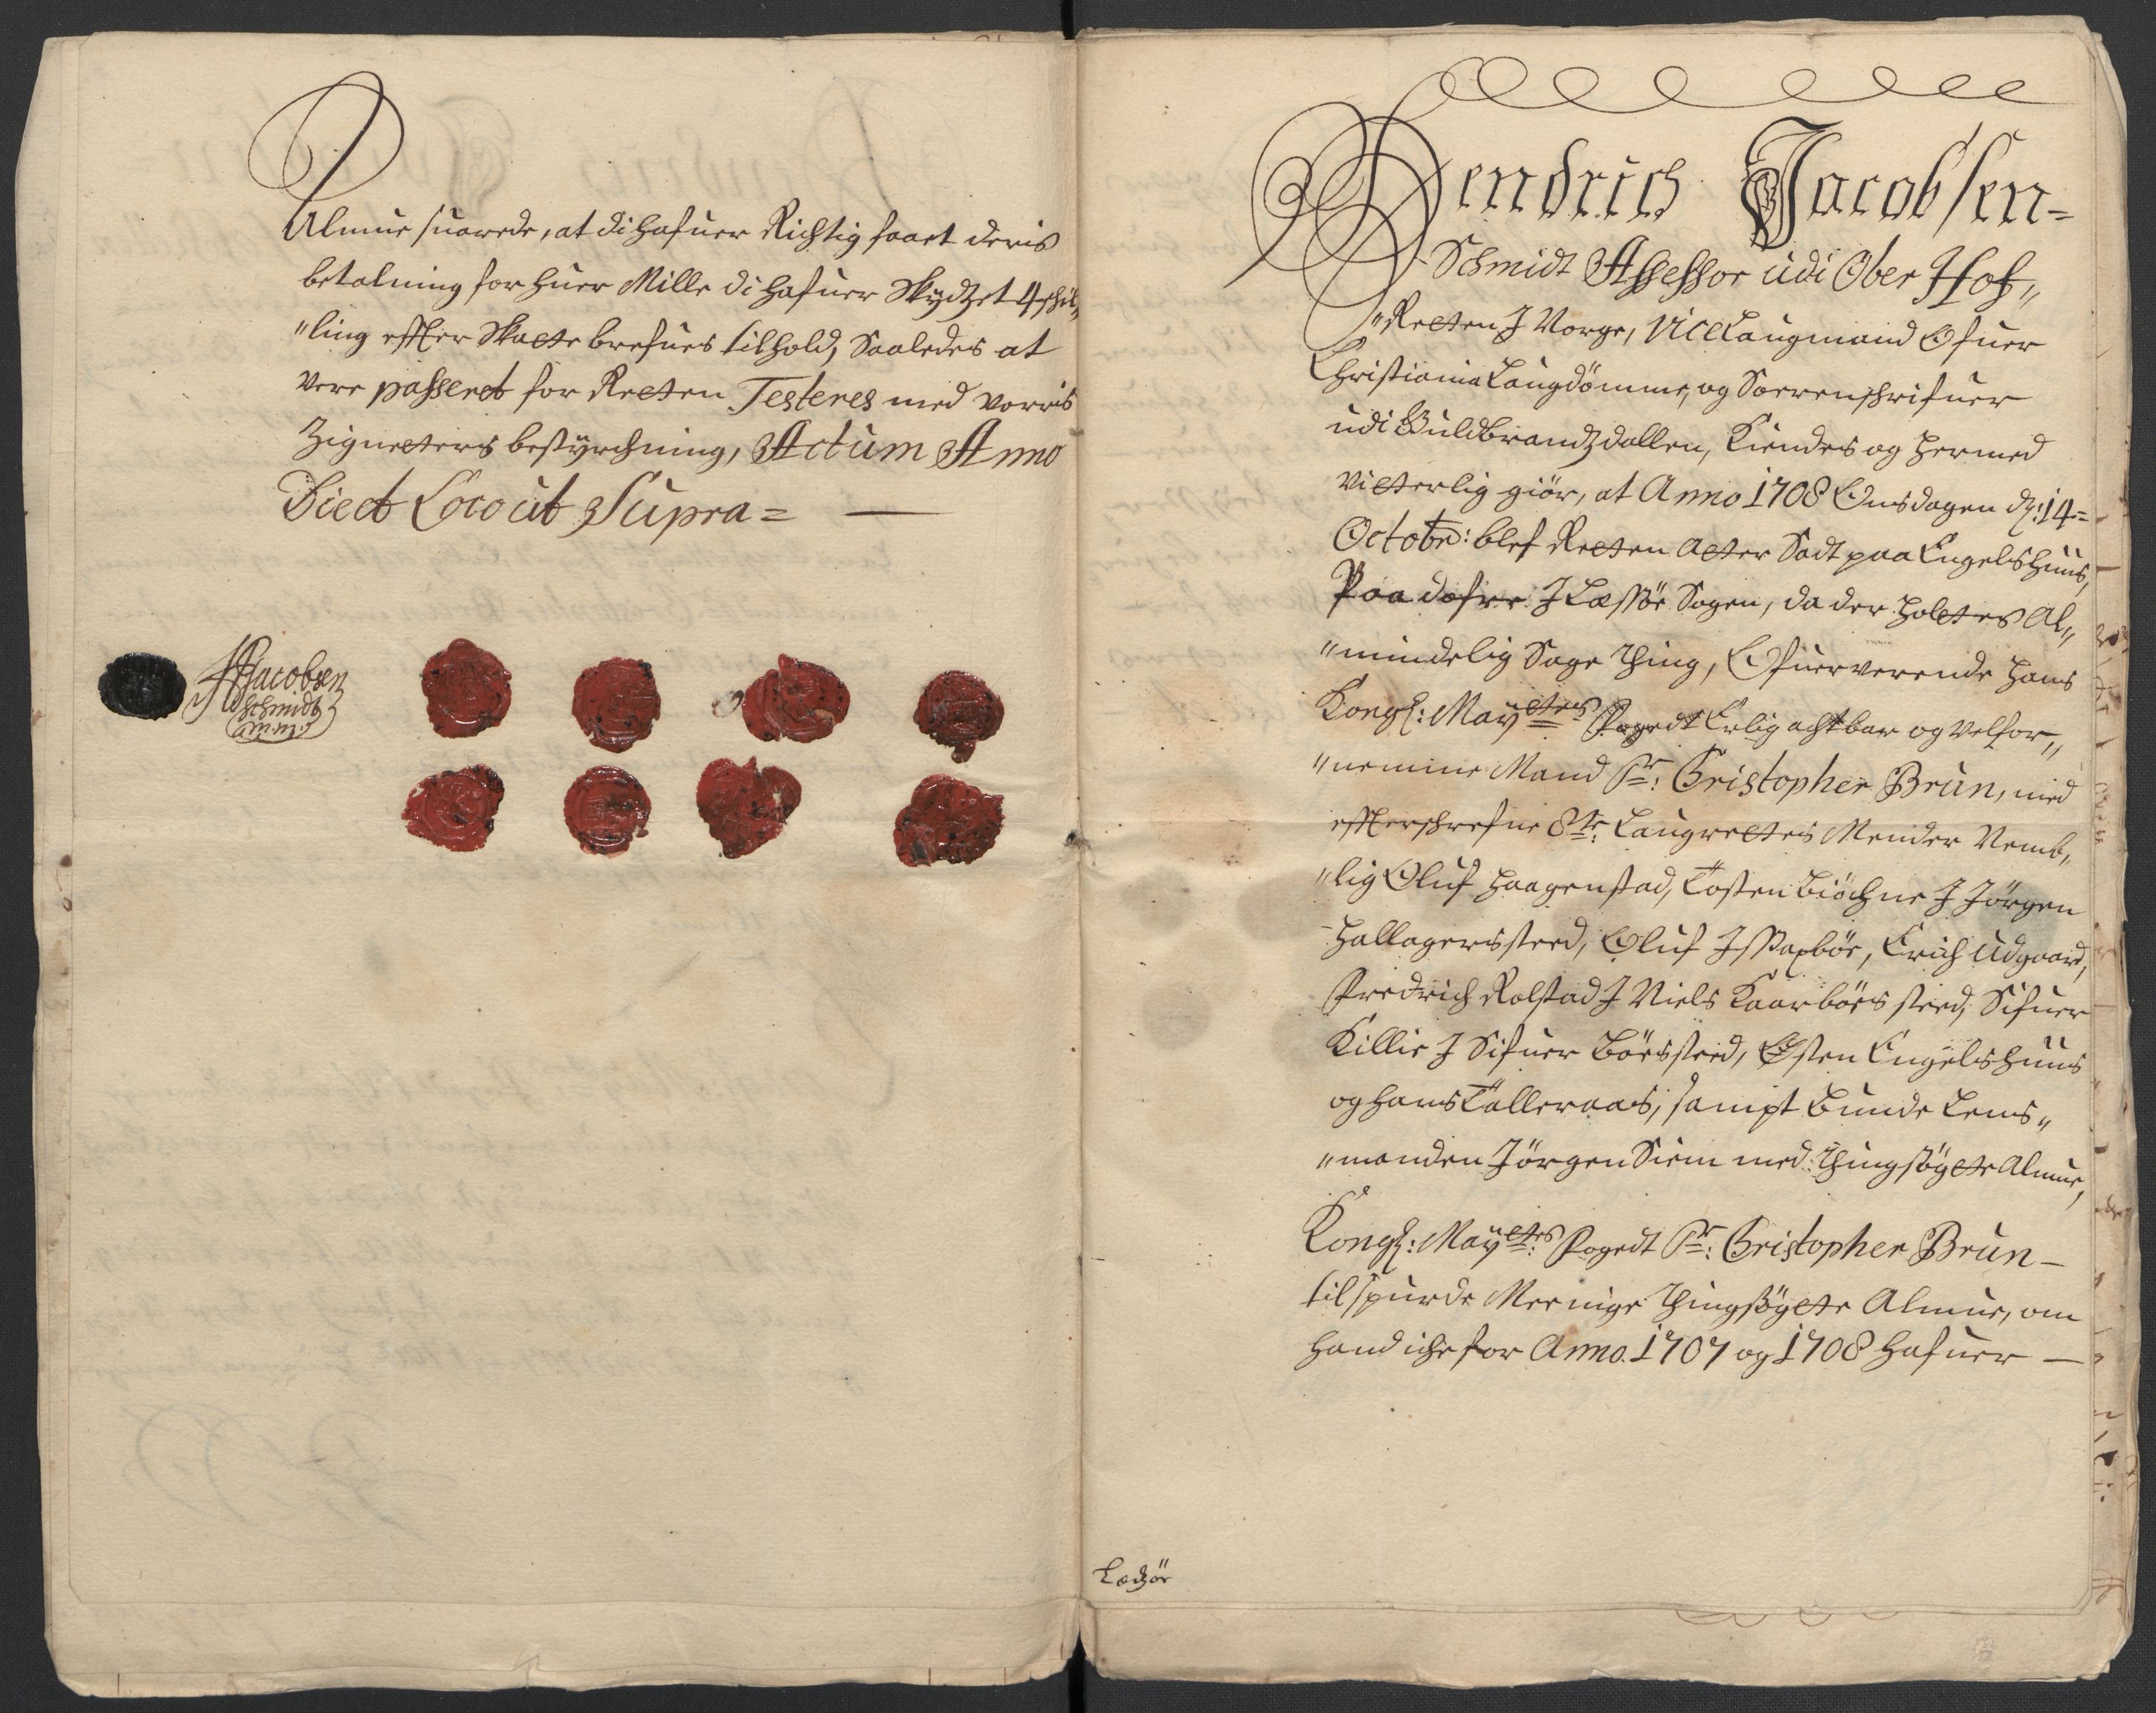 Almue suarede, at di hafuer Richtig faaet deris
betalning for huer Mille di hafuer Skydtzet 4 schil„
„ling effter Skatte brefues tilhold, Saaledes at
vere passeret for Retten Testeres med vorris
Zignetters bestyrchning, Actum Anno
Die et Loco ut Supra =
HJacobsen
Schmidt
mm
Hendrich Jacobsen =
Schmidt Assessor udi Ober Hof„
„Retten J Norge, Vice Laugmand Ofuer
Christiania Laugdömme, og Sorrenschrifuer
udi Guldbrandzdallen, Kiendes og hermed
vitterlig giör, at Anno 1708 Onsdagen dz: 14 =
Octobr: blef Retten Atter Sadt paa Engelshuus,
Paa J Læssöe Sogen, da der holtes Al„
„mindelig Sage Thing, Ofuerverende hans
Kongl: Mayttes Fogedt Erlig achtbar og Velfor„
„nemme Mand Sr: Cristopher Brun, med
effterschrefne 8te Laugrettes Mender Nemb„
„lig Oluf Haagenstad, Tosten Biöchne J Jörgen
Hallagers steed, Oluf J , Erich Udgaard,
Fredrich Rolstad J Niels Kaarböes steed, Sifuer
Killie J Sifuer Böes steed, Esten Engelshuus
og Hans Talleraas, sampt Bunde Lens„
„manden Jörgen Siem med Thingsögte Almue,
Kongl: Mayttes: Fogedt Sr: Cristopher Brun –
tilspurde Meenige Thingsögte Almue, om
Hand iche for Anno 1707 og 1708 Hafuer —
Ledsör